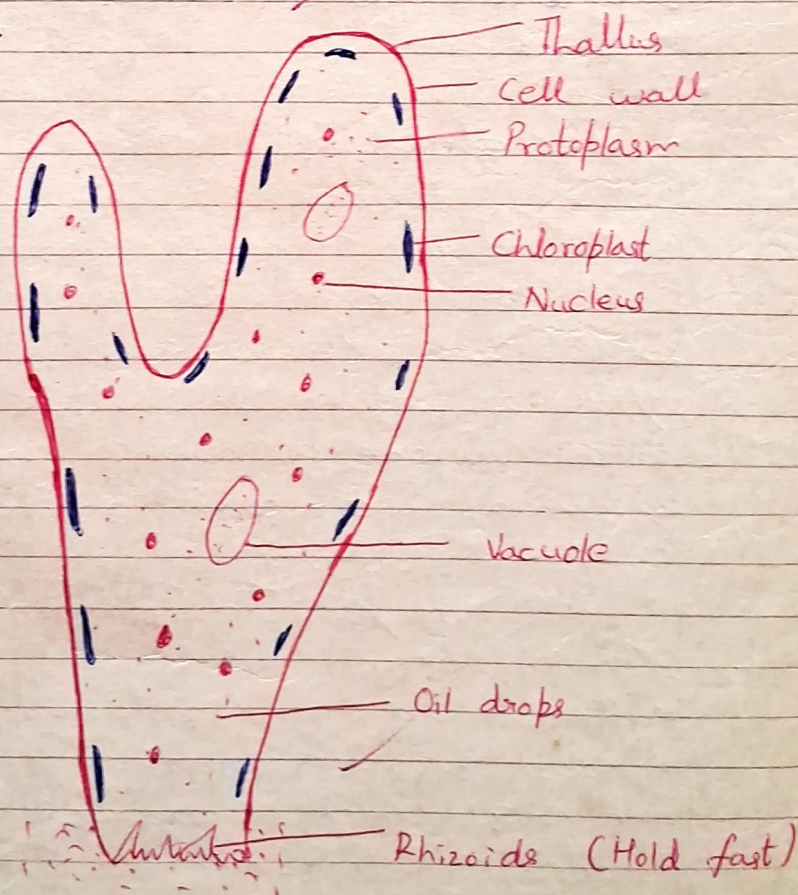 Thallus
Cell wall
Protoplasm
Chloroplast
Nucleus
Vacuole
Oil drops
Rhizoids (Hold fast)